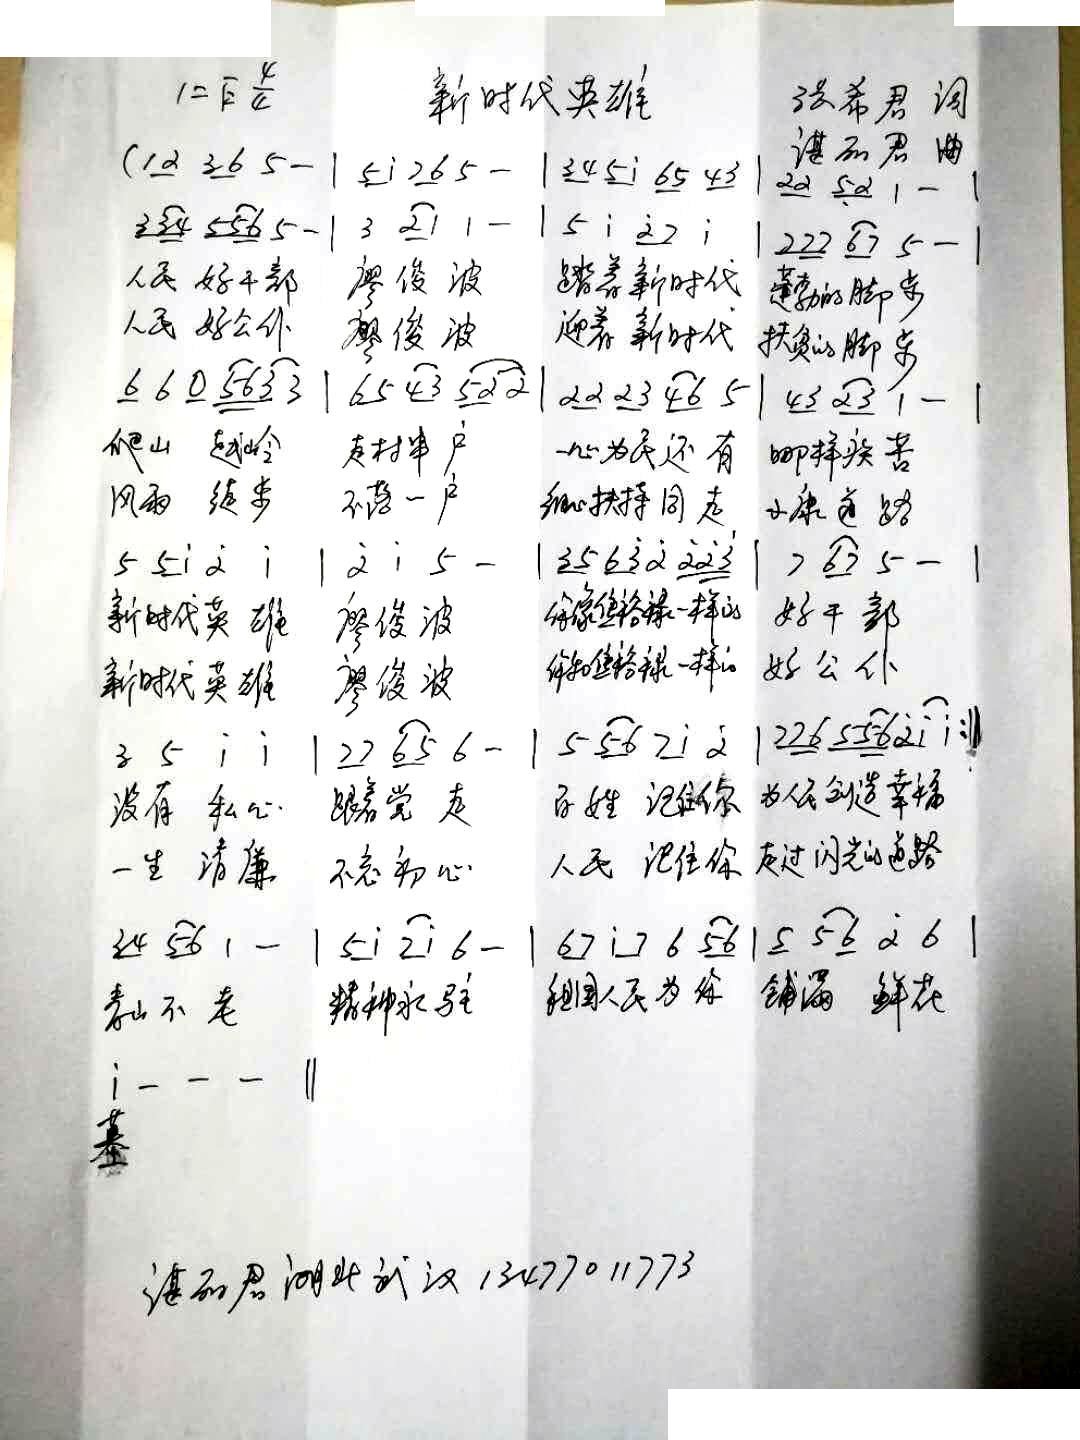 1=F 4/4 新时代英雄 张希君 词
谌丽君 曲
(12 36 5 - | 5i 76 5 - | 345i 65 43 | 22 52 1 - |
334 556 5 - | 3 21 1 - | 5 i 27 i | 222 67 5 - |
人民 好干部 廖俊波 踏着新时代 蓬勃的脚步
人民 好公仆 廖俊波 迎着新时代 扶贫的脚步
6 6 0 5633 | 65 43 522 | 22 23 46 5 | 43 23 1 - |
爬山 越岭 走村串户 一心为民还有 哪样疾苦
风雨 徒步 不落一户 细心扶择同走 小康道路
5 5i 2 i | 2 i 5 - | 35 632 223 | 7 67 5 - |
新时代英雄 廖俊波 你像焦裕禄一样的 好干部
新时代英雄 廖俊波 你和焦裕禄一样的 好公仆
3 5 i i | 27 65 6 - | 5 56 7i 2 | 226 5562i i :||
没有 私心 跟着党走 百姓 记住你 为人民创造幸福
一生 清廉 不忘初心 人民 记住你 走过闪光的道路
34 56 1 - | 5i 7i 6 - | 67 i7 6 56 | 5 56 2 6 |
青山不老 精神永驻 祖国人民为你 铺满 鲜花
i - - - ||
墓
谌丽君湖北武汉13477011773